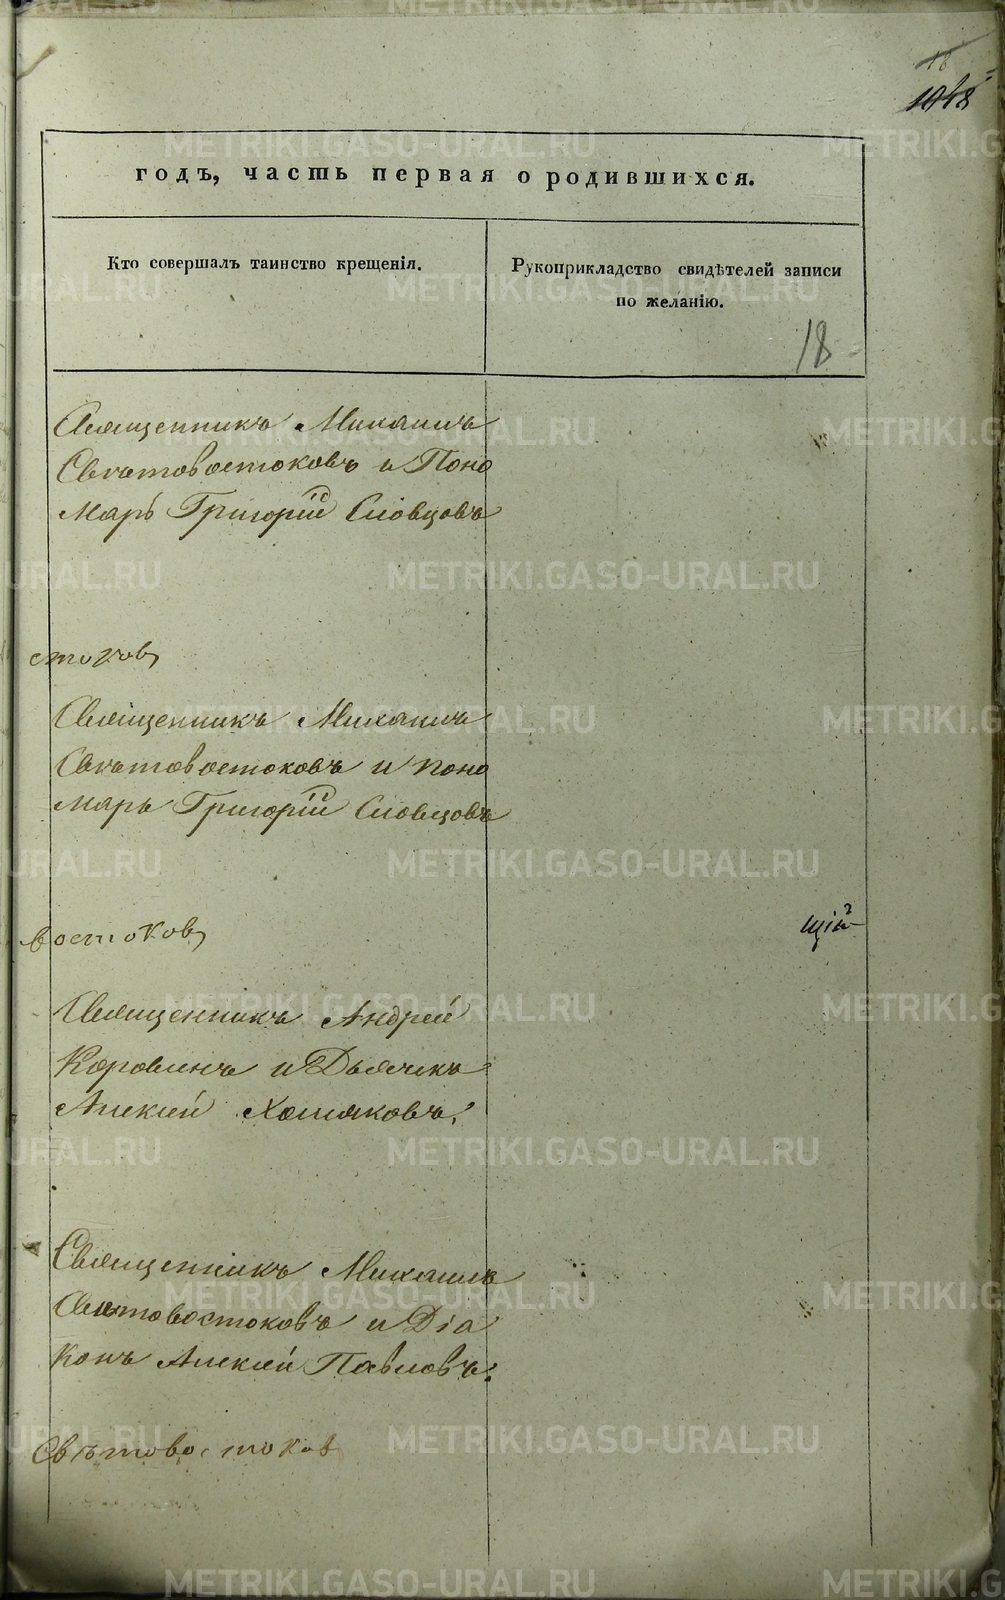 18
1048
годъ, часть первая о родившихся.
Кто совершалъ таинство крещенія.
Рукоприкладство свидѣтелей записи
по желанію.
18
Священникъ Михаилъ
Свѣтовостоковъ и Поно
марь Григорій Словцовъ
стоковъ
Священникъ Михаилъ
Свѣтовостоковъ и поно
марь Григорій Словцовъ
востоковъ
щій
Священникъ Андрей
Коровинъ и Дьячекъ
Алексій Хомяковъ.
Священникъ Михаилъ
Свѣтовостоковъ и Діа
конъ Алексій Павловъ.
Свѣтовостоков
METRIKI.GASO-URAL.RU